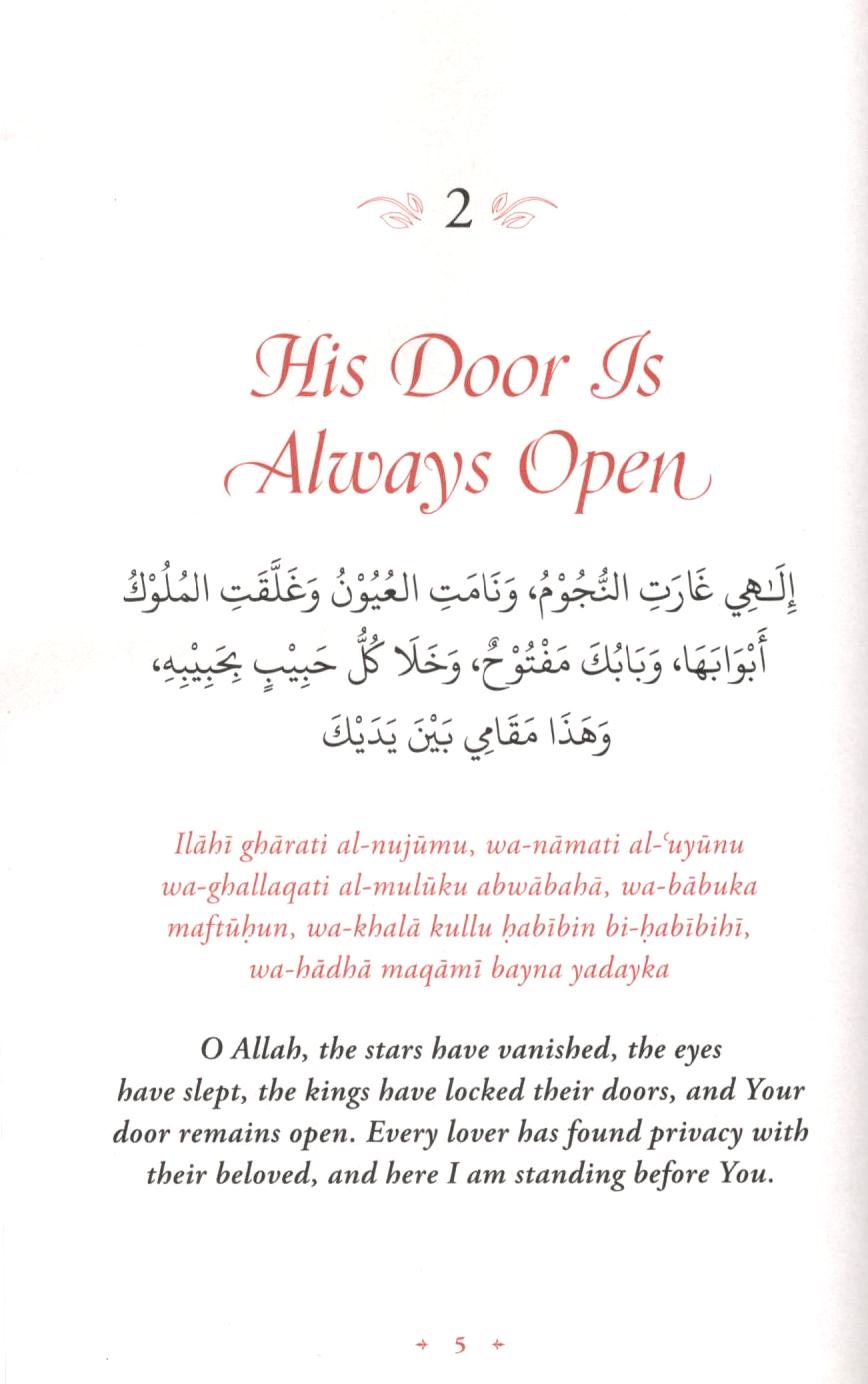 2
His Door Is
Always Open
إِلَـٰهِي غَارَتِ النُّجُوْمُ، وَنَامَتِ العُيُوْنُ وَغَلَّقَتِ المُلُوْكُ
أَبْوَابَهَا، وَبَابُكَ مَفْتُوْحٌ، وَخَلَا كُلُّ حَبِيْبٍ بِحَبِيْبِهِ،
وَهَذَا مَقَامِي بَيْنَ يَدَيْكَ
Ilāhī ghārati al-nujūmu, wa-nāmati al-ʿuyūnu
wa-ghallaqati al-mulūku abwābahā, wa-bābuka
maftūḥun, wa-khalā kullu ḥabībin bi-ḥabībihī,
wa-hādhā maqāmī bayna yadayka
O Allah, the stars have vanished, the eyes
have slept, the kings have locked their doors, and Your
door remains open. Every lover has found privacy with
their beloved, and here I am standing before You.
5